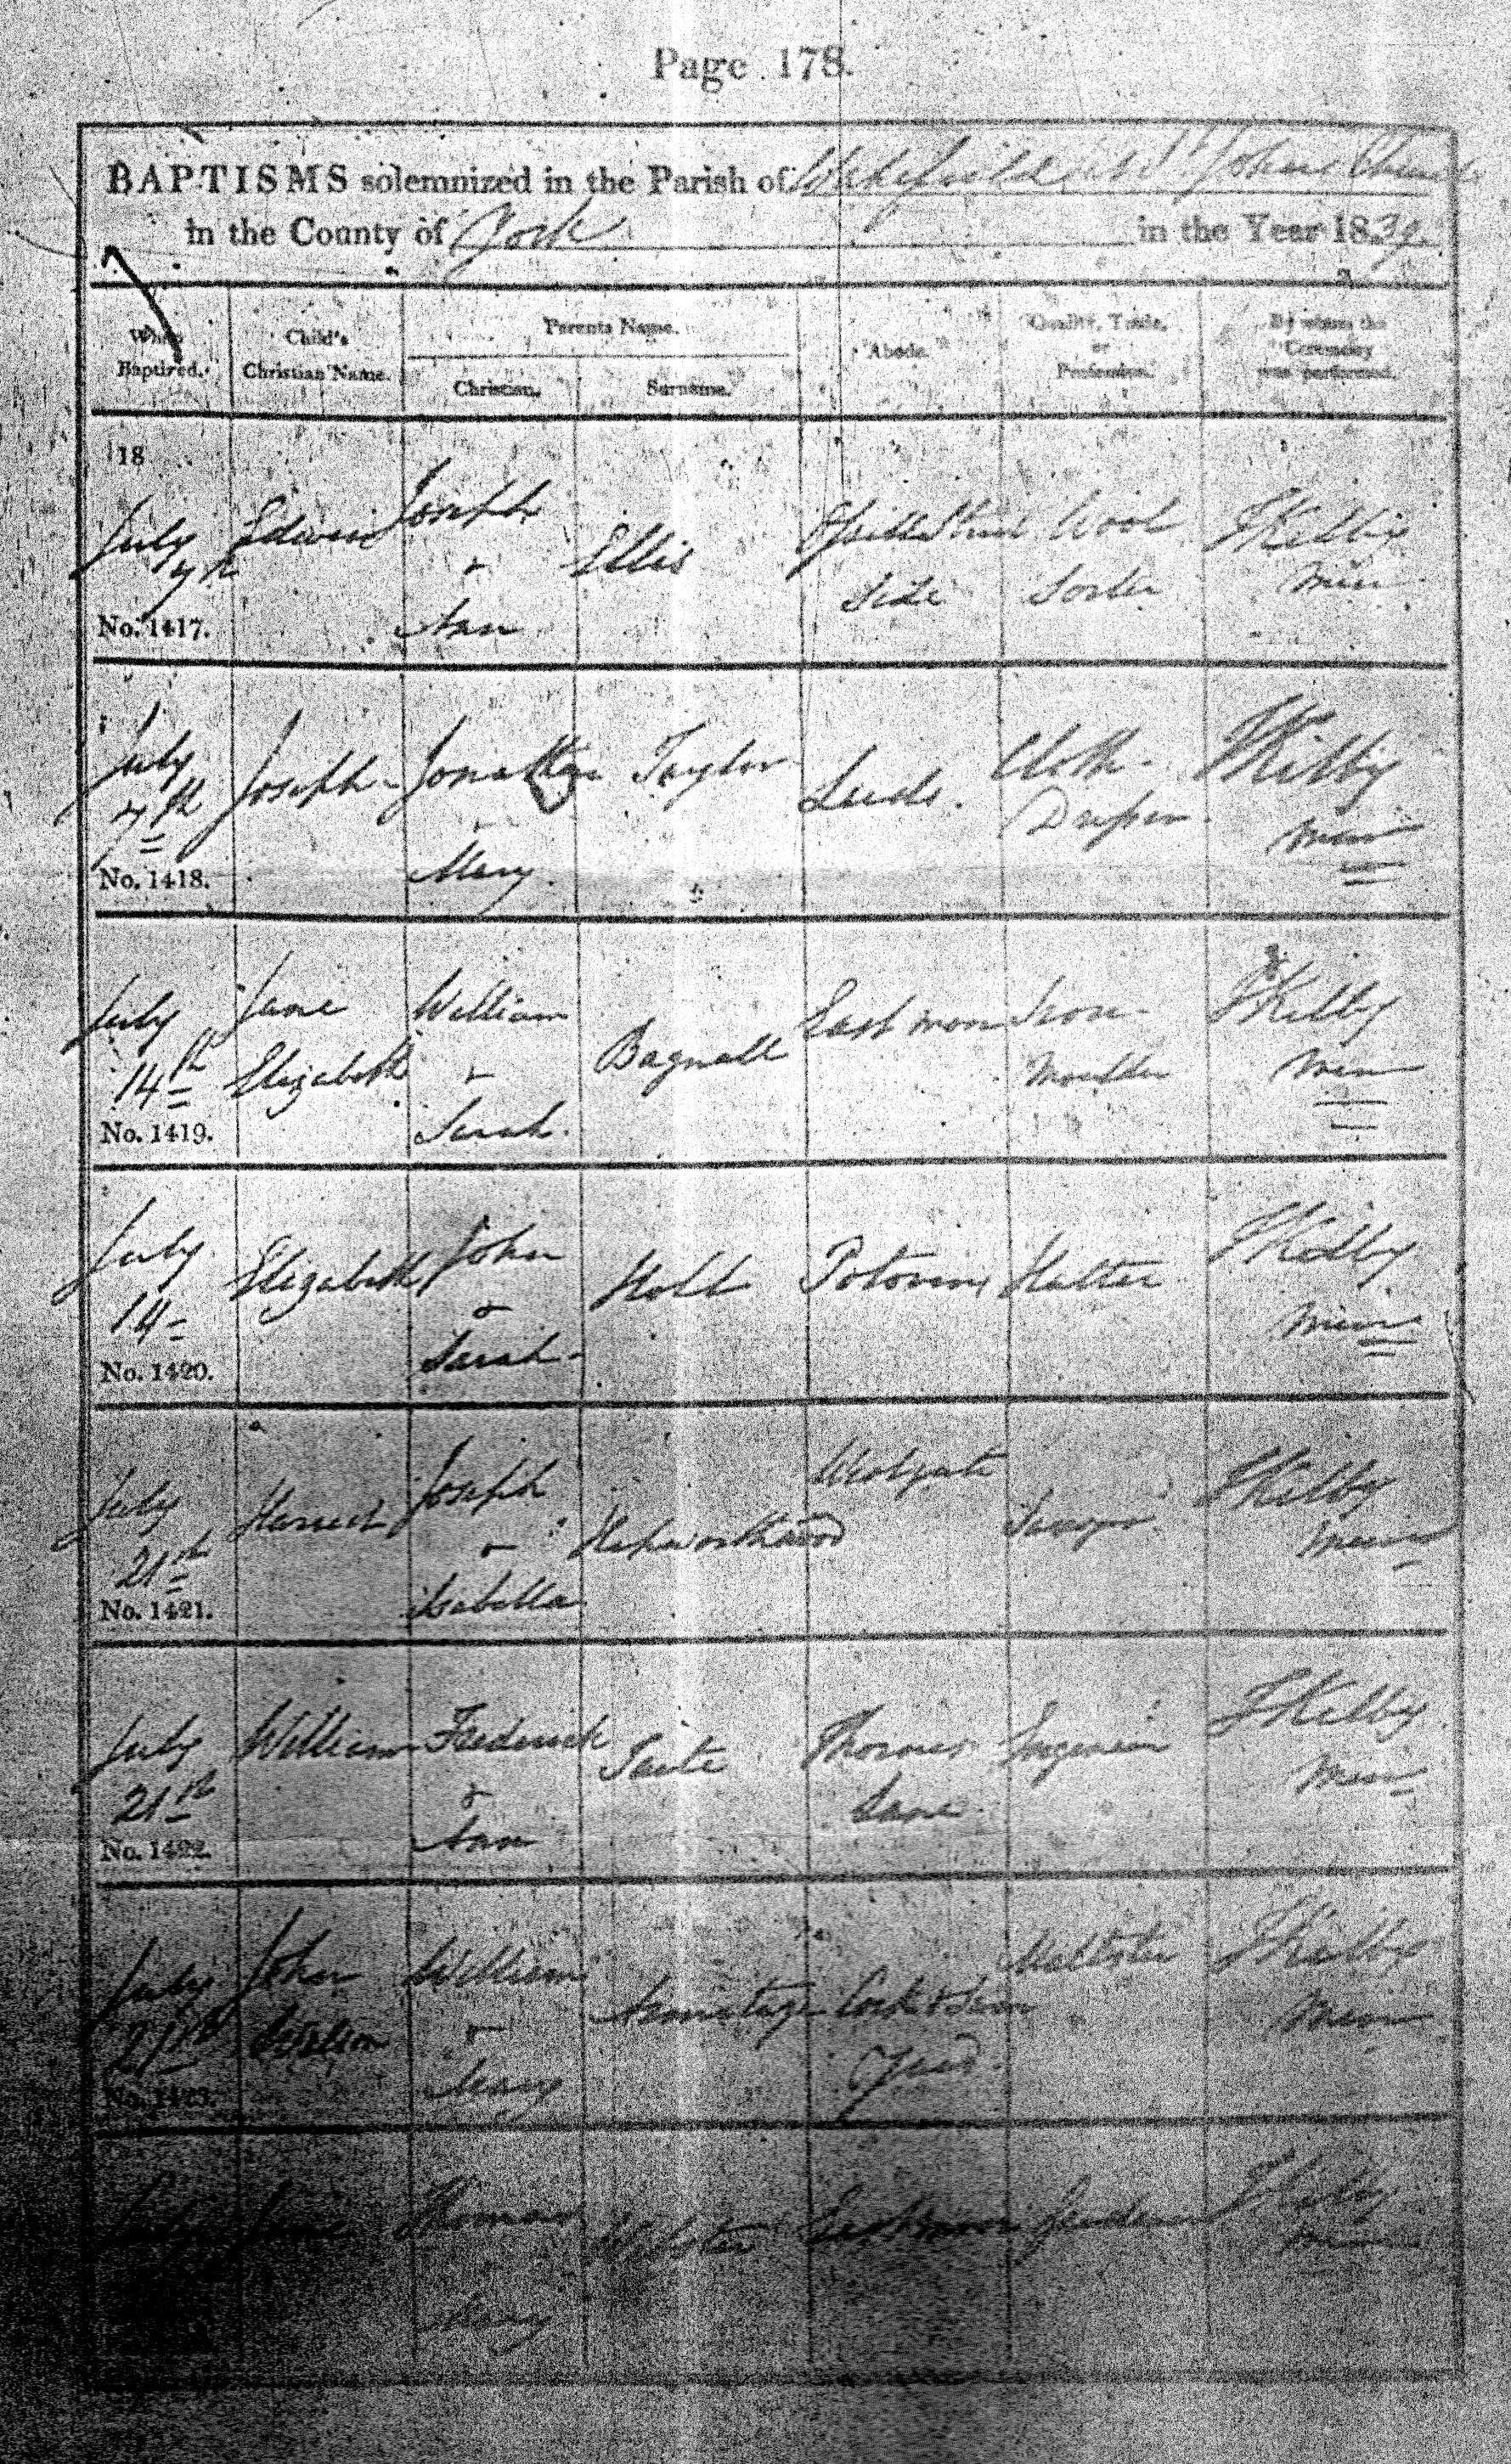 Page 178.
BAPTISMS solemnized in the Parish of Wakefield St Johns Church
in the County of York in the Year 1839.
When Baptized. Child's Christian Name. Parents Name. Christian. Surname. Abode. Quality, Trade, or Profession. By whom the Ceremony was performed.
18
July Edwin Joseph & Ellis Street Wool TKilby
7th Side Sorter Min
No. 1417. Ann
July Joseph Jonathan Taylor Leeds. Cloth TKilby
7th Dresser Min
No. 1418. Mary
July Jane William Bagnall Eastmoor Iron TKilby
14th Elizabeth & Moulder Min
No. 1419. Sarah.
July Elizabeth John Holt Potovens Hatter TKilby
14 & Min
No. 1420. Sarah
July Joseph Westgate TKilby
21st & Hepworth Min
No. 1421. Isabella
July William Frederick Engineer TKilby
21st & Lane Min
No. 1422. Ann
July John William Maltster TKilby
21st William & Armitage Min
No. 1423. Mary Yard.
July Jane Thomas Webster Eastmoor TKilby
Min
Mary